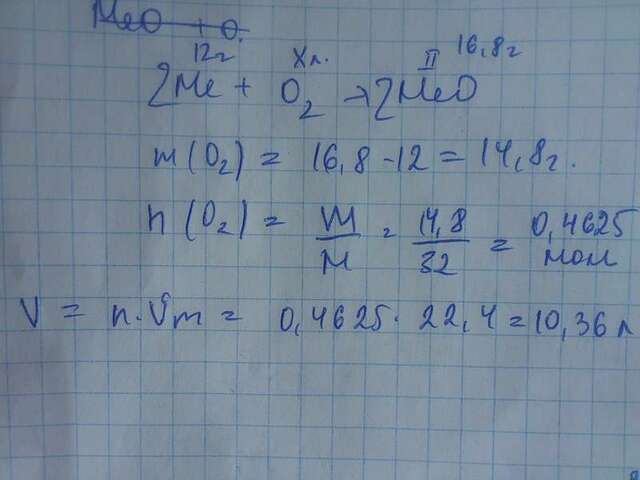 MeO + O.
12г Хл. II 16,8г
2Me + O₂ → 2MeO
m(O₂) = 16,8 - 12 = 14,8г.
n(O₂) = m/M = 14,8/32 = 0,4625 мол
V = n·Vm = 0,4625 · 22,4 = 10,36 л